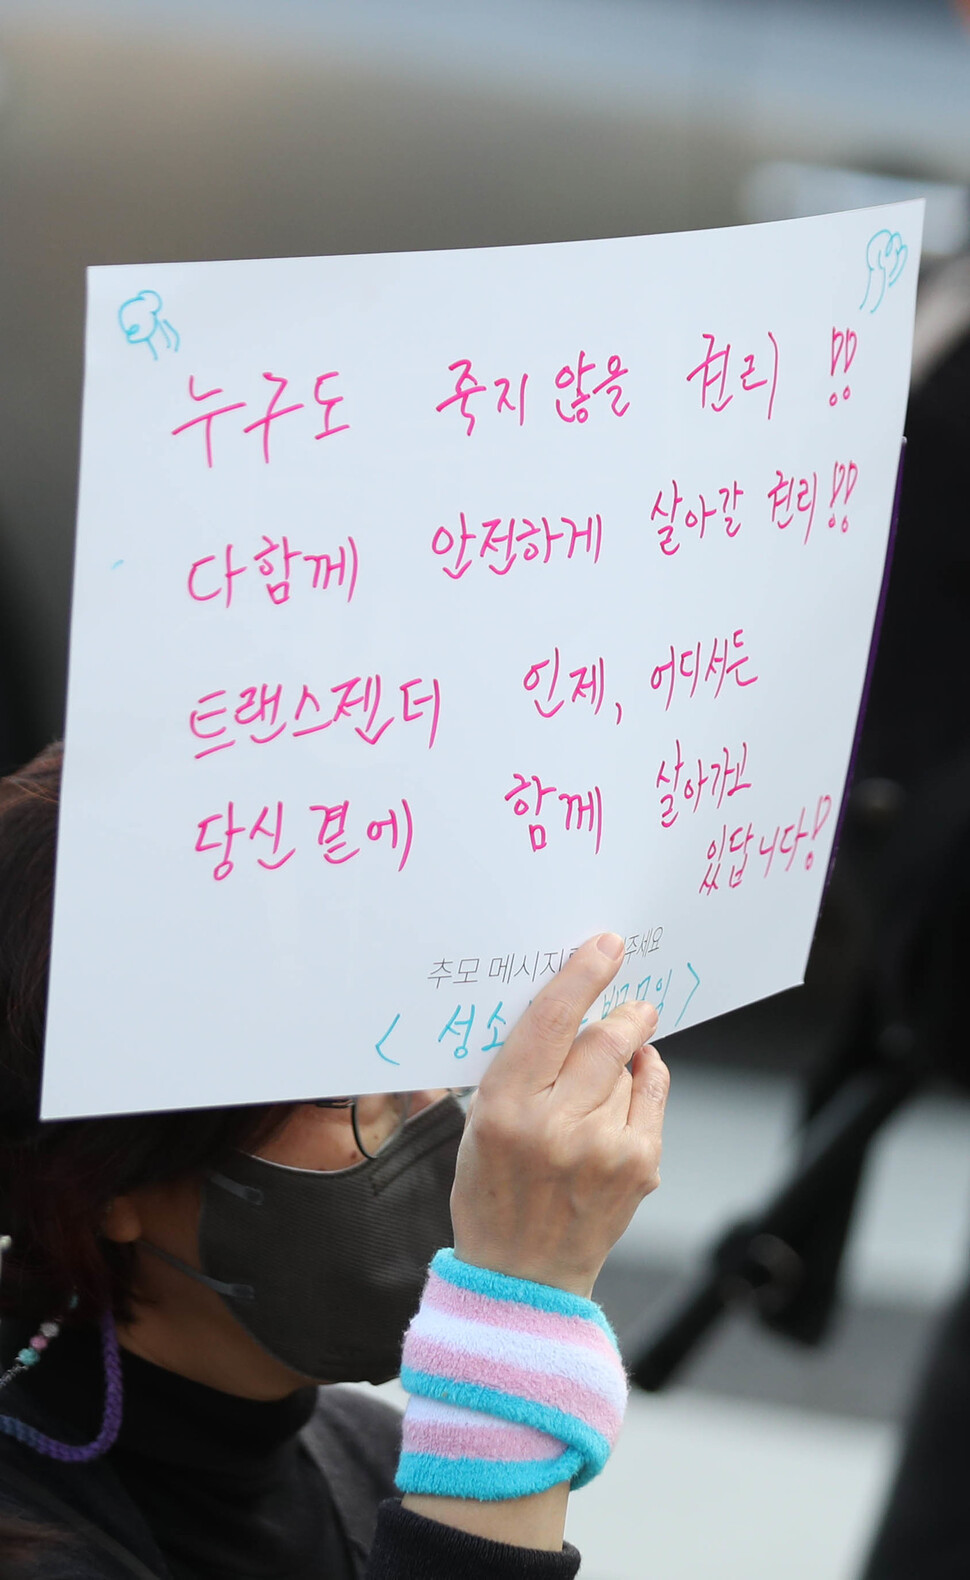 누구도 죽지 않을 권리!!
다함께 안전하게 살아갈 권리!!
트랜스젠더 언제, 어디서든
당신 곁에 함께 살아가고
있답니다!
추모 메시지 주세요
< 성소 부모모임 >